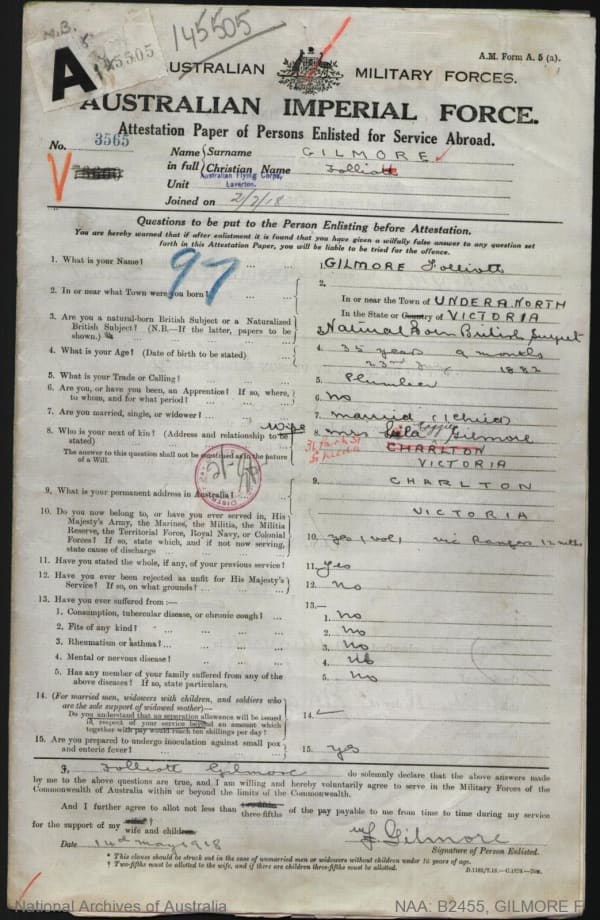 N.B.
145505
A 145505
A.M. Form A. 5 (a).
AUSTRALIAN MILITARY FORCES.
AUSTRALIAN IMPERIAL FORCE.
Attestation Paper of Persons Enlisted for Service Abroad.
No. 3565
Name in full Surname GILMORE
Christian Name Folliott
Unit Australian Flying Corps, Laverton.
Joined on 2/7/18
Questions to be put to the Person Enlisting before Attestation.
You are hereby warned that if after enlistment it is found that you have given a wilfully false answer to any question set
forth in this Attestation Paper, you will be liable to be tried for the offence.
97
1. What is your Name? ... ... 1. GILMORE Folliott
2. In or near what Town were you born? ... 2. In or near the Town of UNDERA NORTH
In the State or County of VICTORIA
3. Are you a natural-born British Subject or a Naturalized
British Subject? (N.B.—If the latter, papers to be
shown.) 3. Natural Born British Subject
4. What is your Age? (Date of birth to be stated) ... 4. 35 years 9 months
23rd 1882
5. What is your Trade or Calling? ... 5. Plumber
6. Are you, or have you been, an Apprentice? If so, where,
to whom, and for what period? ... 6. No
7. Are you married, single, or widower? ... 7. married 1 child
8. Who is your next of kin? (Address and relationship to be
stated) wife 8. Mrs Gilmore
The answer to this question shall not be construed as in the nature
of a Will.
CHARLTON
VICTORIA
9. What is your permanent address in Australia? 9. CHARLTON
VICTORIA
10. Do you now belong to, or have you ever served in, His
Majesty's Army, the Marines, the Militia, the Militia
Reserve, the Territorial Force, Royal Navy, or Colonial
Forces? If so, state which, and if not now serving,
state cause of discharge ... 10. yes, Vol, Vic Rangers 12 mths
11. Have you stated the whole, if any, of your previous service? 11. Yes
12. Have you ever been rejected as unfit for His Majesty's
Service? If so, on what grounds? ... 12. No
13. Have you ever suffered from:— 13.—
1. Consumption, tubercular disease, or chronic cough? ... 1. No
2. Fits of any kind? ... 2. No
3. Rheumatism or asthma? ... 3. No
4. Mental or nervous disease? ... 4. No
5. Has any member of your family suffered from any of the
above diseases? If so, state particulars. 5. No
14. (For married men, widowers with children, and soldiers who
are the sole support of widowed mother)—
Do you understand that no separation allowance will be issued
in respect of your service beyond an amount which
together with pay would reach ten shillings per day? 14.
15. Are you prepared to undergo inoculation against small pox
and enteric fever? ... 15. yes
I, Folliott Gilmore do solemnly declare that the above answers made
by me to the above questions are true, and I am willing and hereby voluntarily agree to serve in the Military Forces of the
Commonwealth of Australia within or beyond the limits of the Commonwealth.
And I further agree to allot not less than two-fifths three-fifths of the pay payable to me from time to time during my service
for the support of my wife wife and children
Gilmore
Date 14th May 1918 Signature of Person Enlisted.
* This clause should be struck out in the case of unmarried men or widowers without children under 16 years of age.
† Two-fifths must be allotted to the wife, and if there are children three-fifths must be allotted.
National Archives of Australia NAA: B2455, GILMORE F